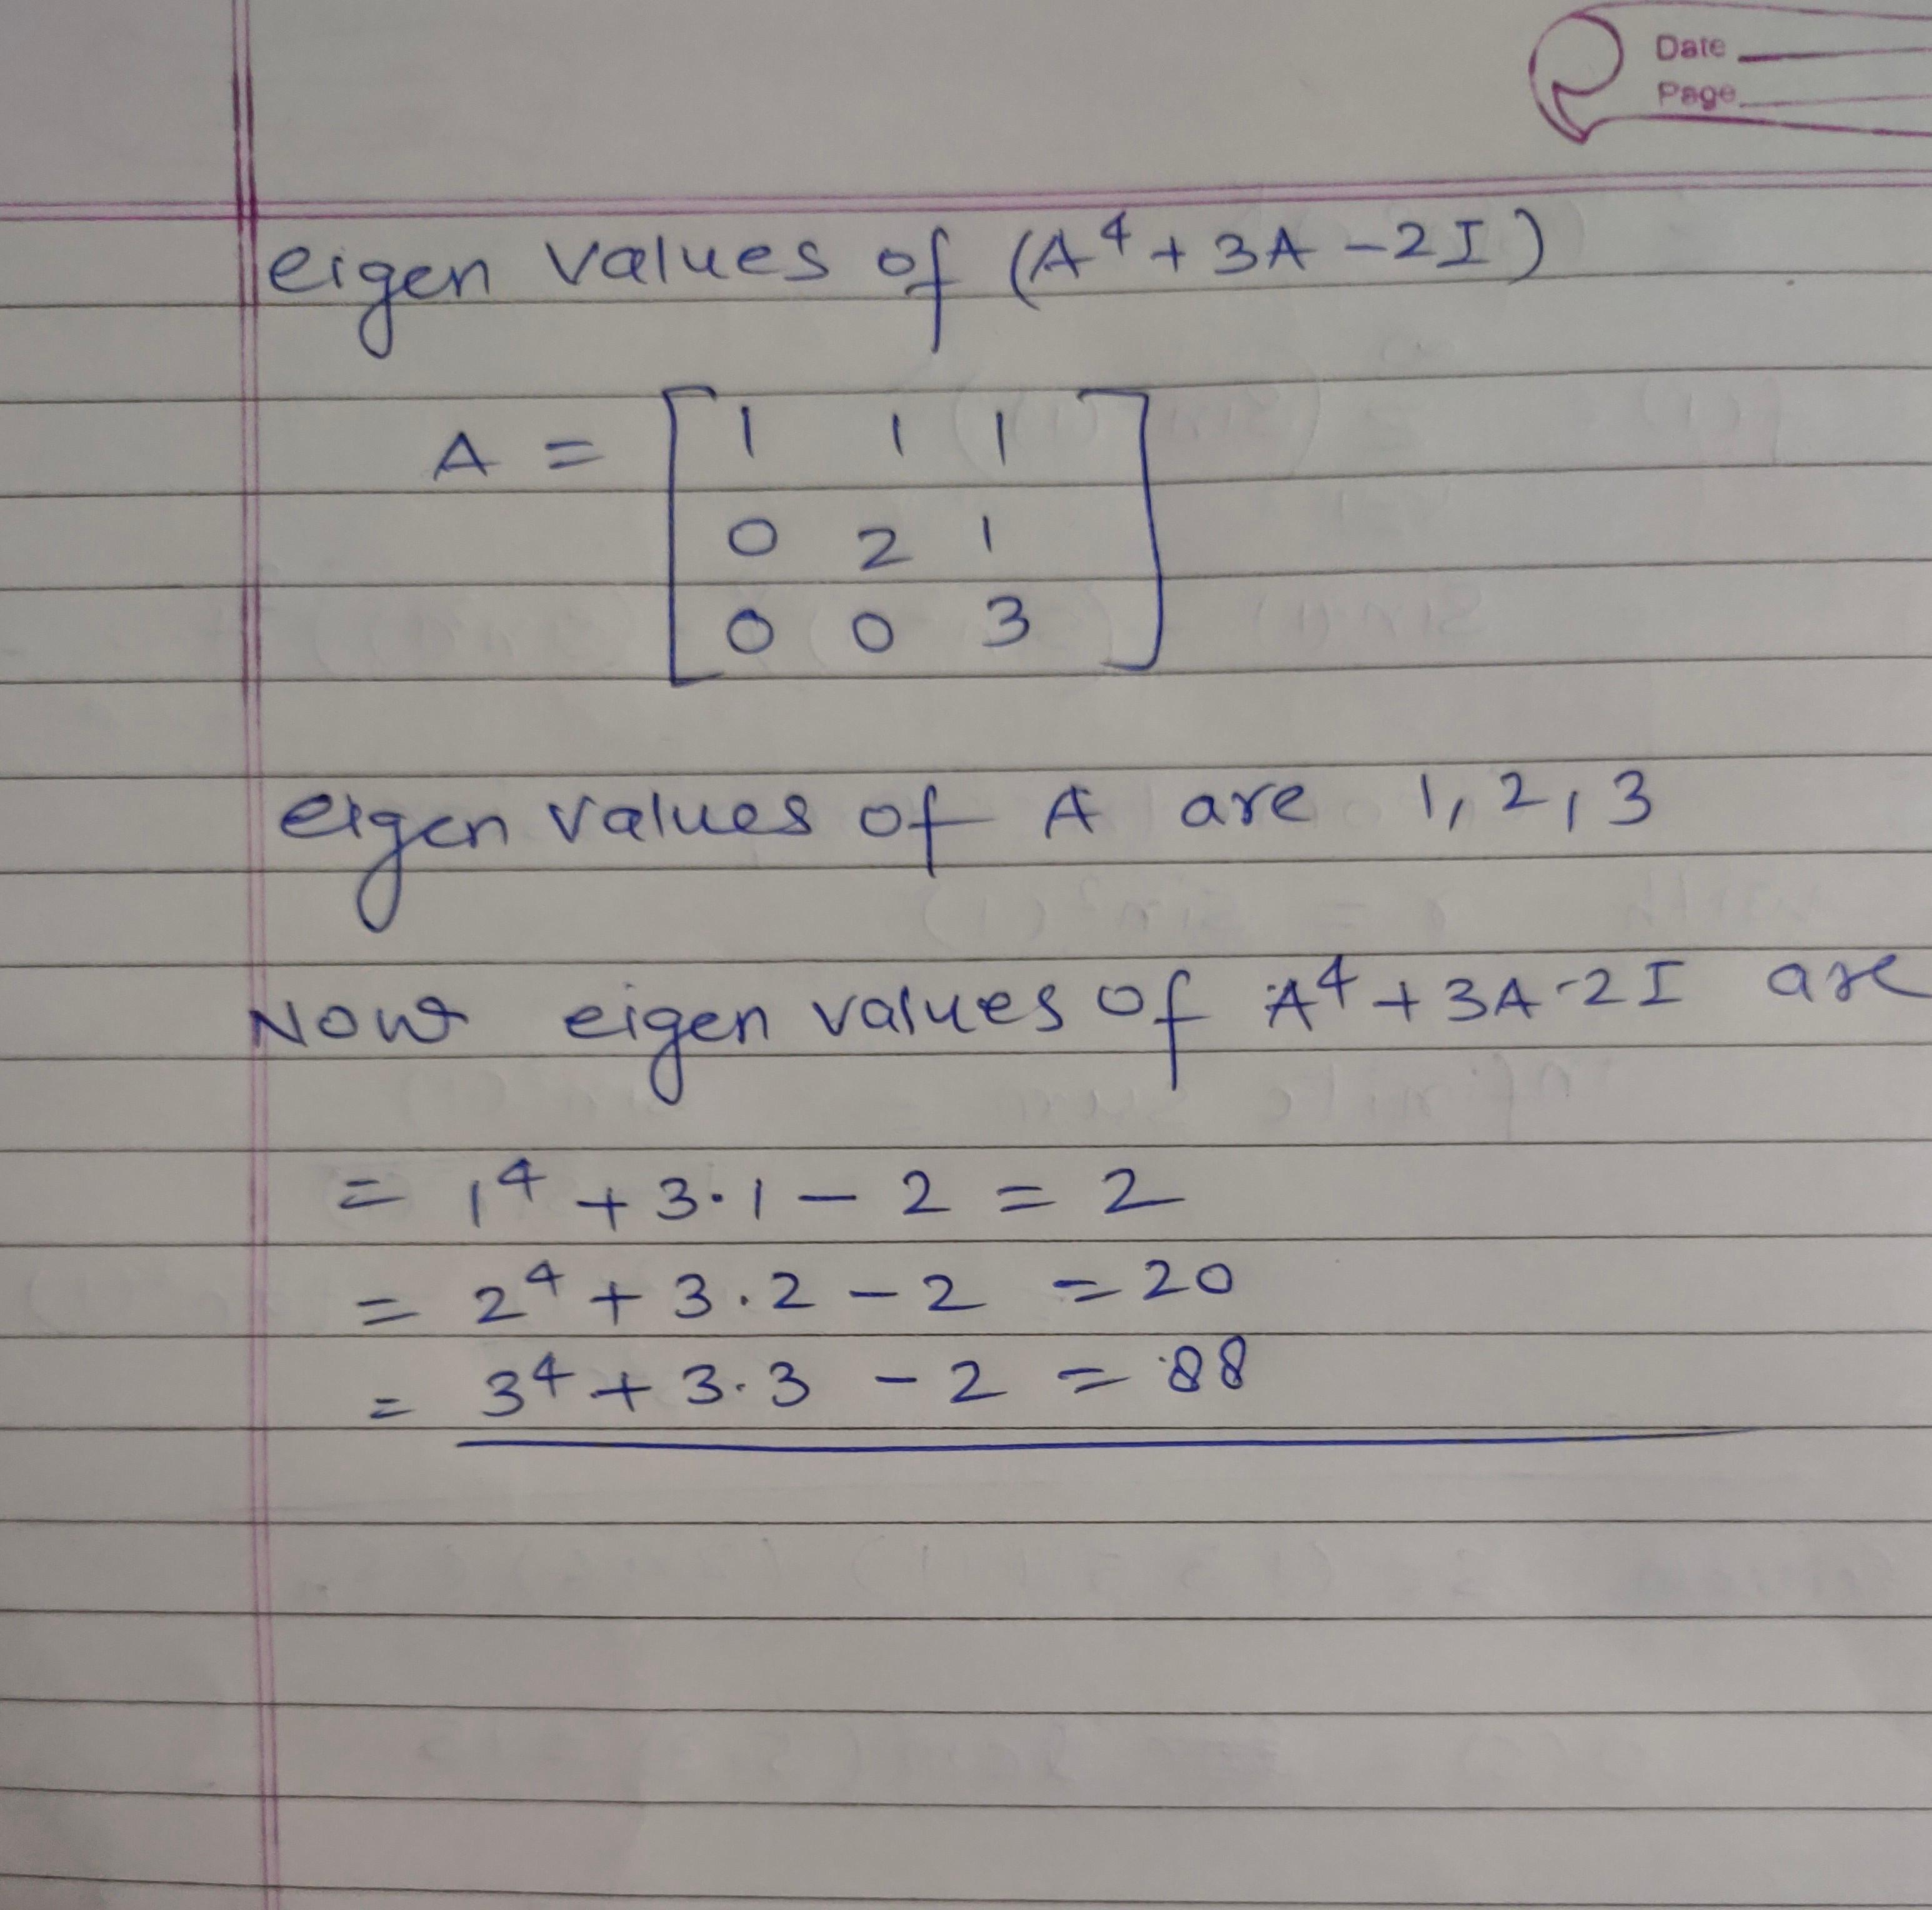 Date
Page
eigen values of (A⁴ + 3A - 2I)
A = [1 1 1
0 2 1
0 0 3]
eigen values of A are 1, 2, 3
Now eigen values of A⁴ + 3A - 2I are
= 1⁴ + 3·1 - 2 = 2
= 2⁴ + 3·2 - 2 = 20
= 3⁴ + 3·3 - 2 = 88